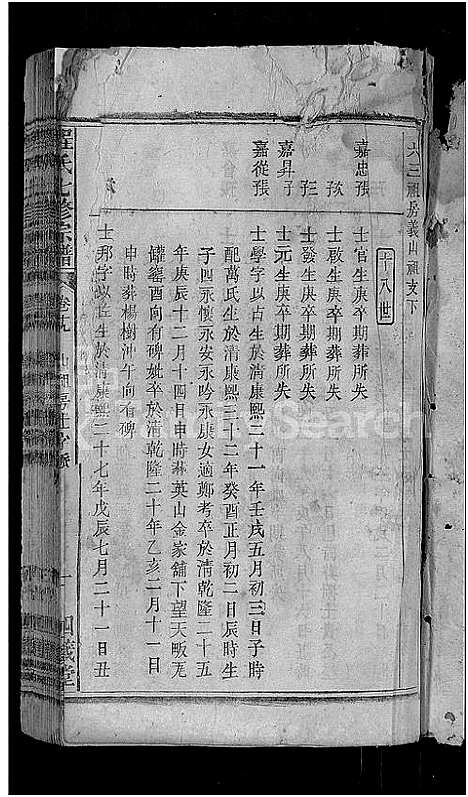 六三祖房義山祖支下
十八世
嘉忠子
士官生庚卒期葬所失
次子
士啟生庚卒期葬所失
三子
士發生庚卒期葬所失
嘉昇子
士元生庚卒期葬所失
嘉從長子
士學字以占生於清康熙三十一年壬戌五月初三日子時
配萬氏生於清康熙三十二年癸酉正月初二日辰時生
子四永懷永安永吟永康女適鄭考卒於清乾隆二十五
年庚辰十二月十四日申時葬英山金家舖下望天畈
罐窰酉向有碑妣卒於清乾隆二十年乙亥二月十一日
申時葬楊樹沖午向有碑
士邦字以佐生於清康熙二十七年戊辰七月二十一日丑
程氏七修宗譜
卷九
Search